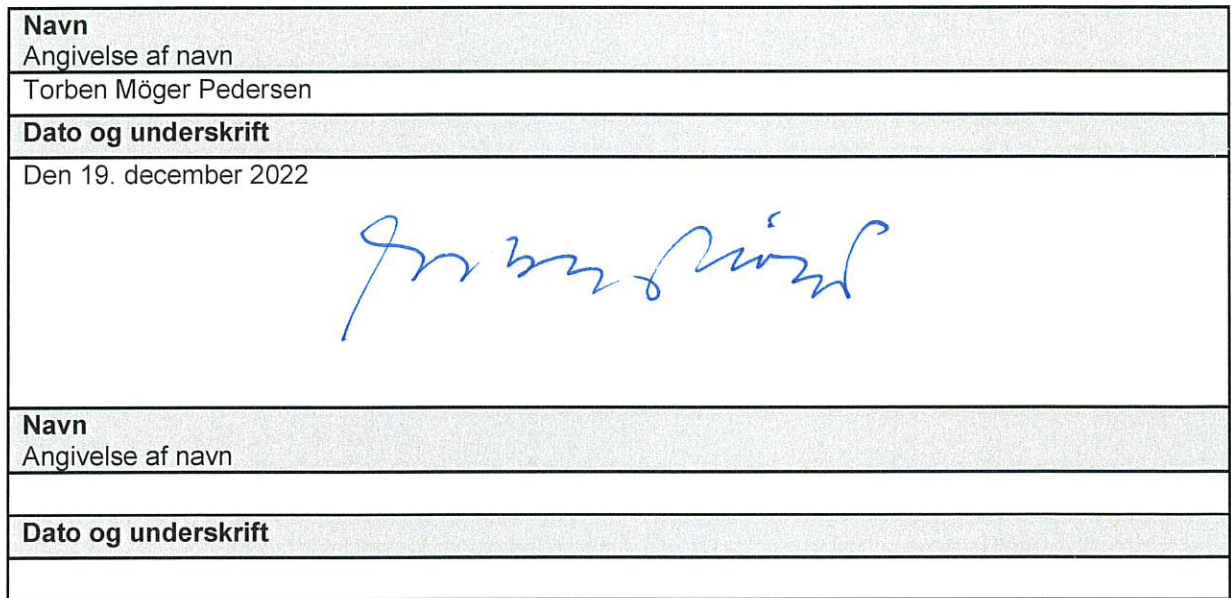 Navn
Angivelse af navn
Torben Möger Pedersen
Dato og underskrift
Den 19. december 2022
Navn
Angivelse af navn
Dato og underskrift